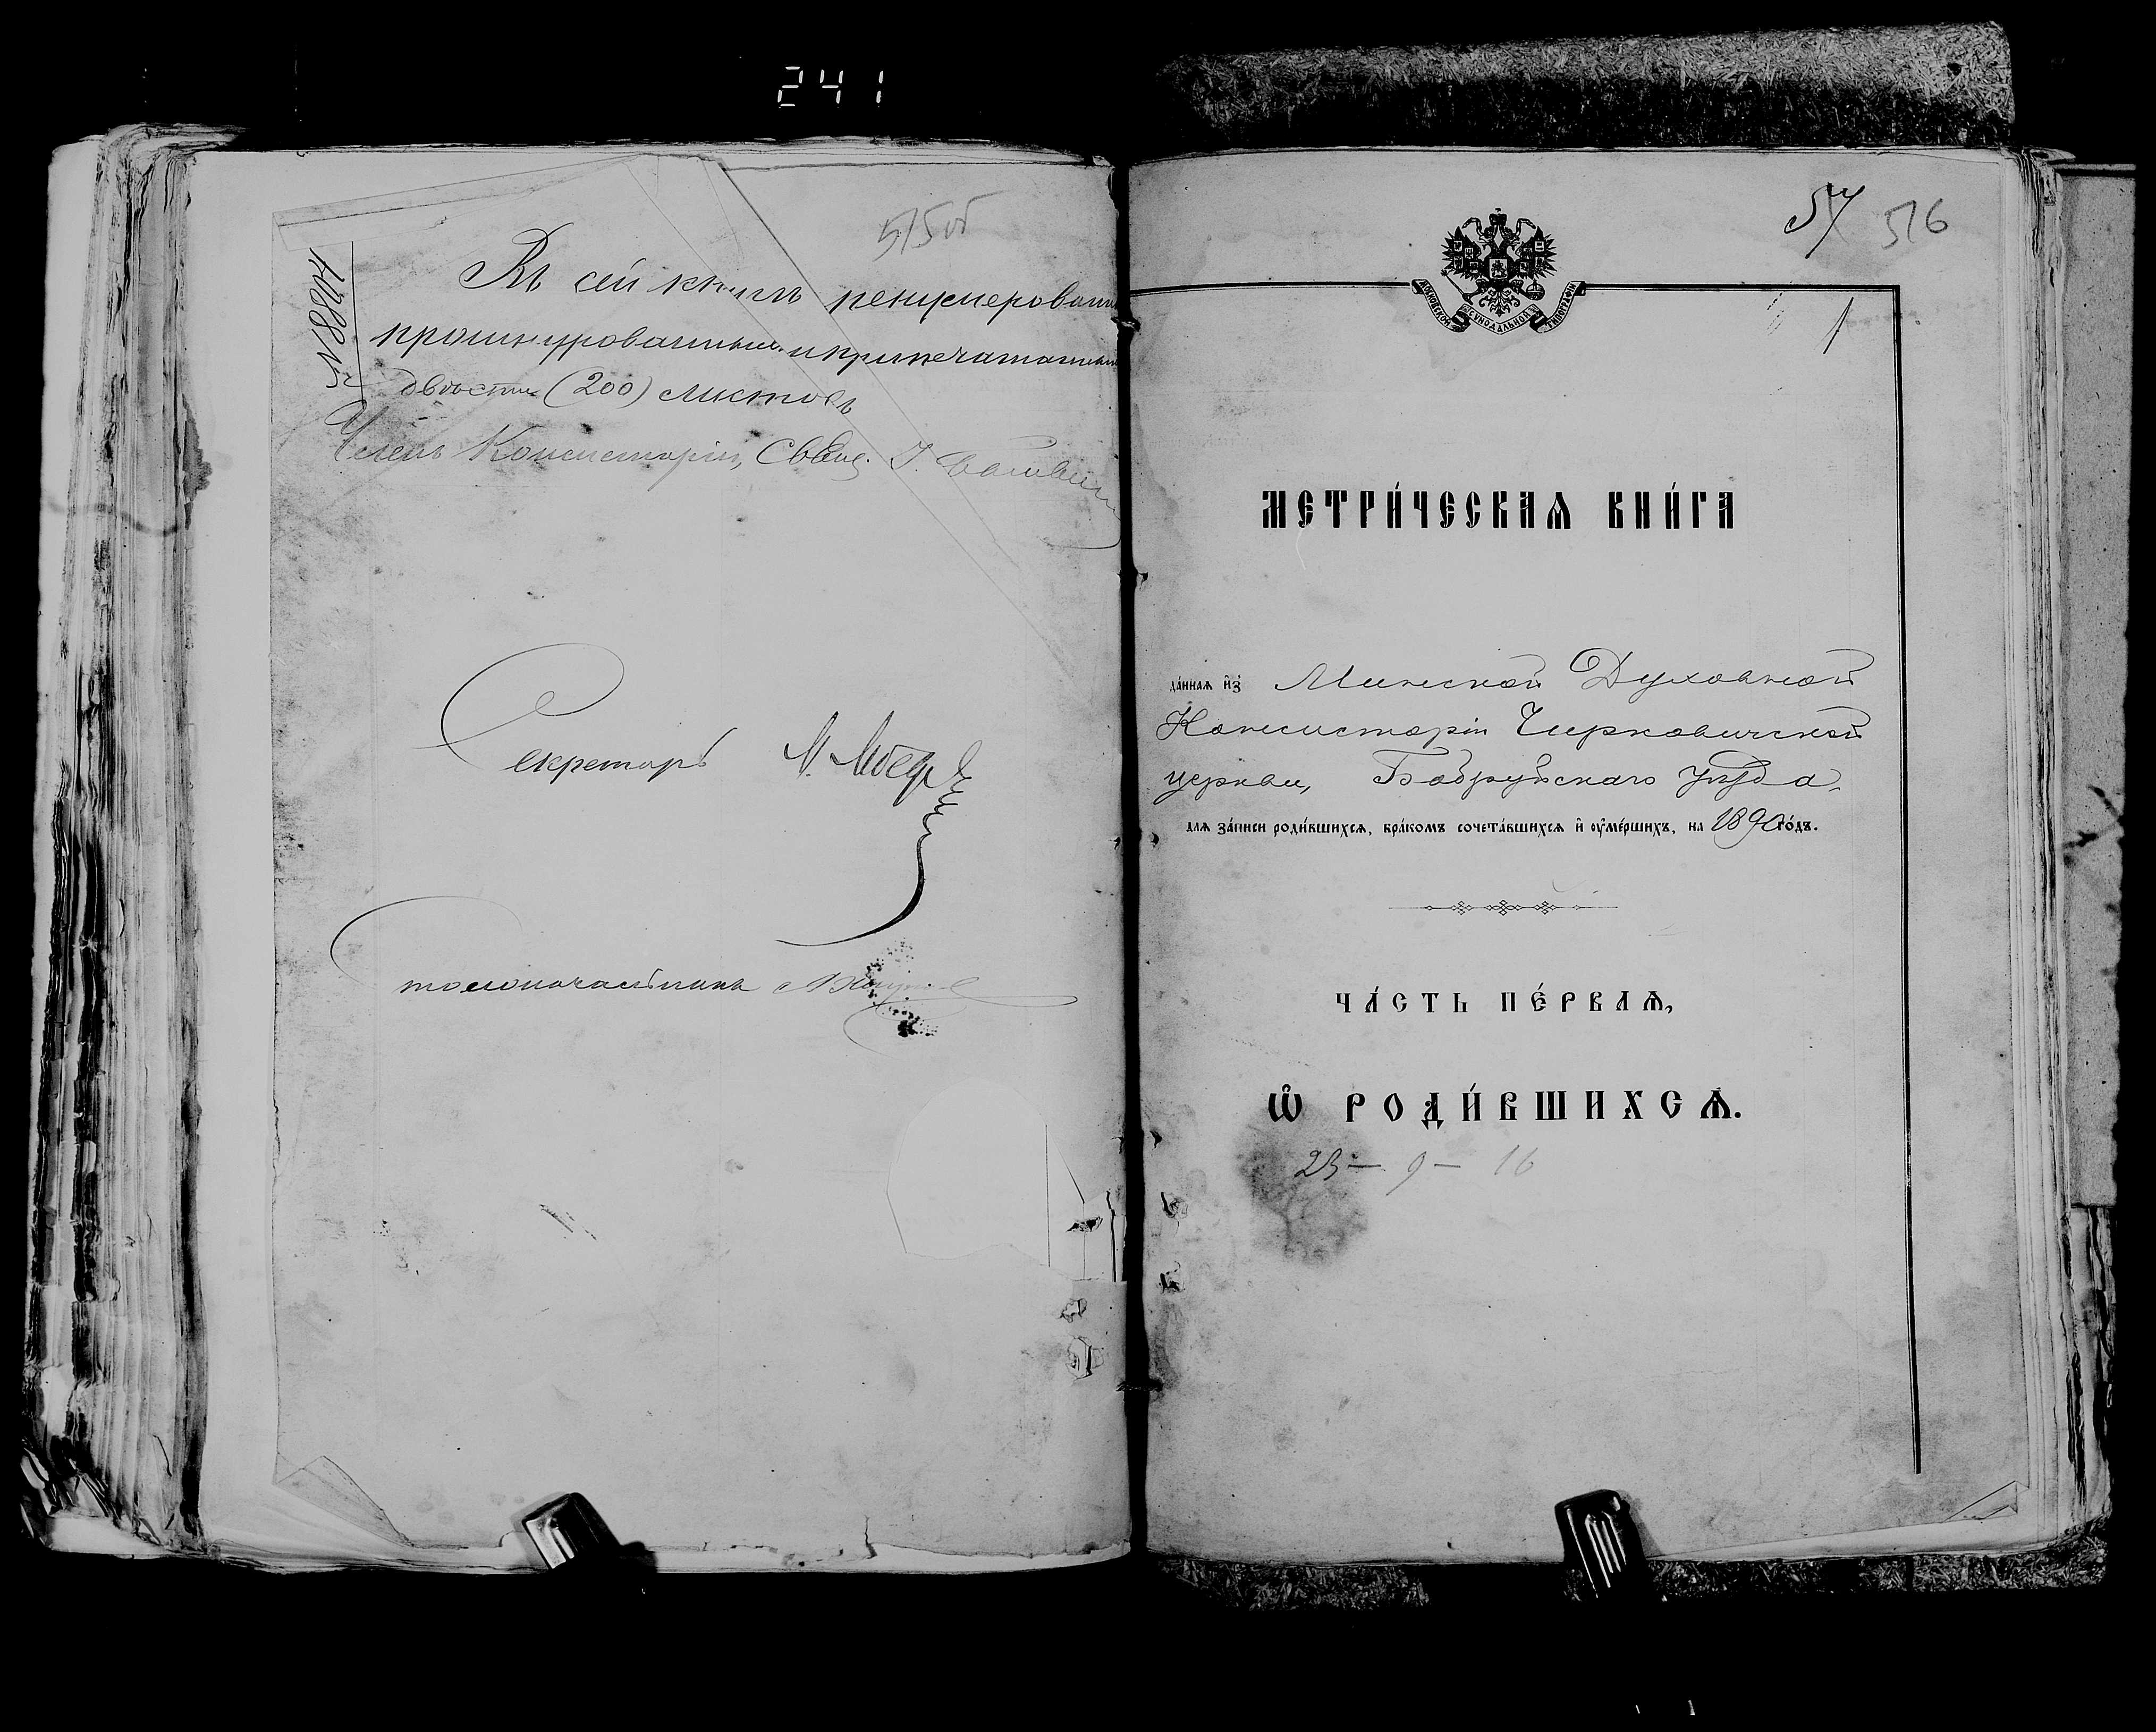 241
515об
№ 18804
Въ сей книгѣ пенумерованн
прошнурованныхъ и припечатанныхъ
двѣсти (200) листовъ
Членъ Консисторіи, Свящ. І.
Секретарь М.
Столоначальникъ
57 516
МОСКОВСКОЙ СѴНОДАЛЬНОЙ ТИПОГРАФІИ
1
МЕТРИ́ЧЕСКАѦ КНИ́ГА
да́ннаѧ и҆з̾ Минской Духовной
Консисторіи Чирковичской
церкви, Бобруйскаго уѣзда,
для за́писи роди́вшихсѧ, бра́комъ сочета́вшихсѧ и҆ ᲂу҆ме́ршихъ, на 1890 го́дъ.
ЧА́СТЬ ПЕ́РВАѦ,
Ѡ҆ РОДИ́ВШИХСѦ.
23 — 9 — 16